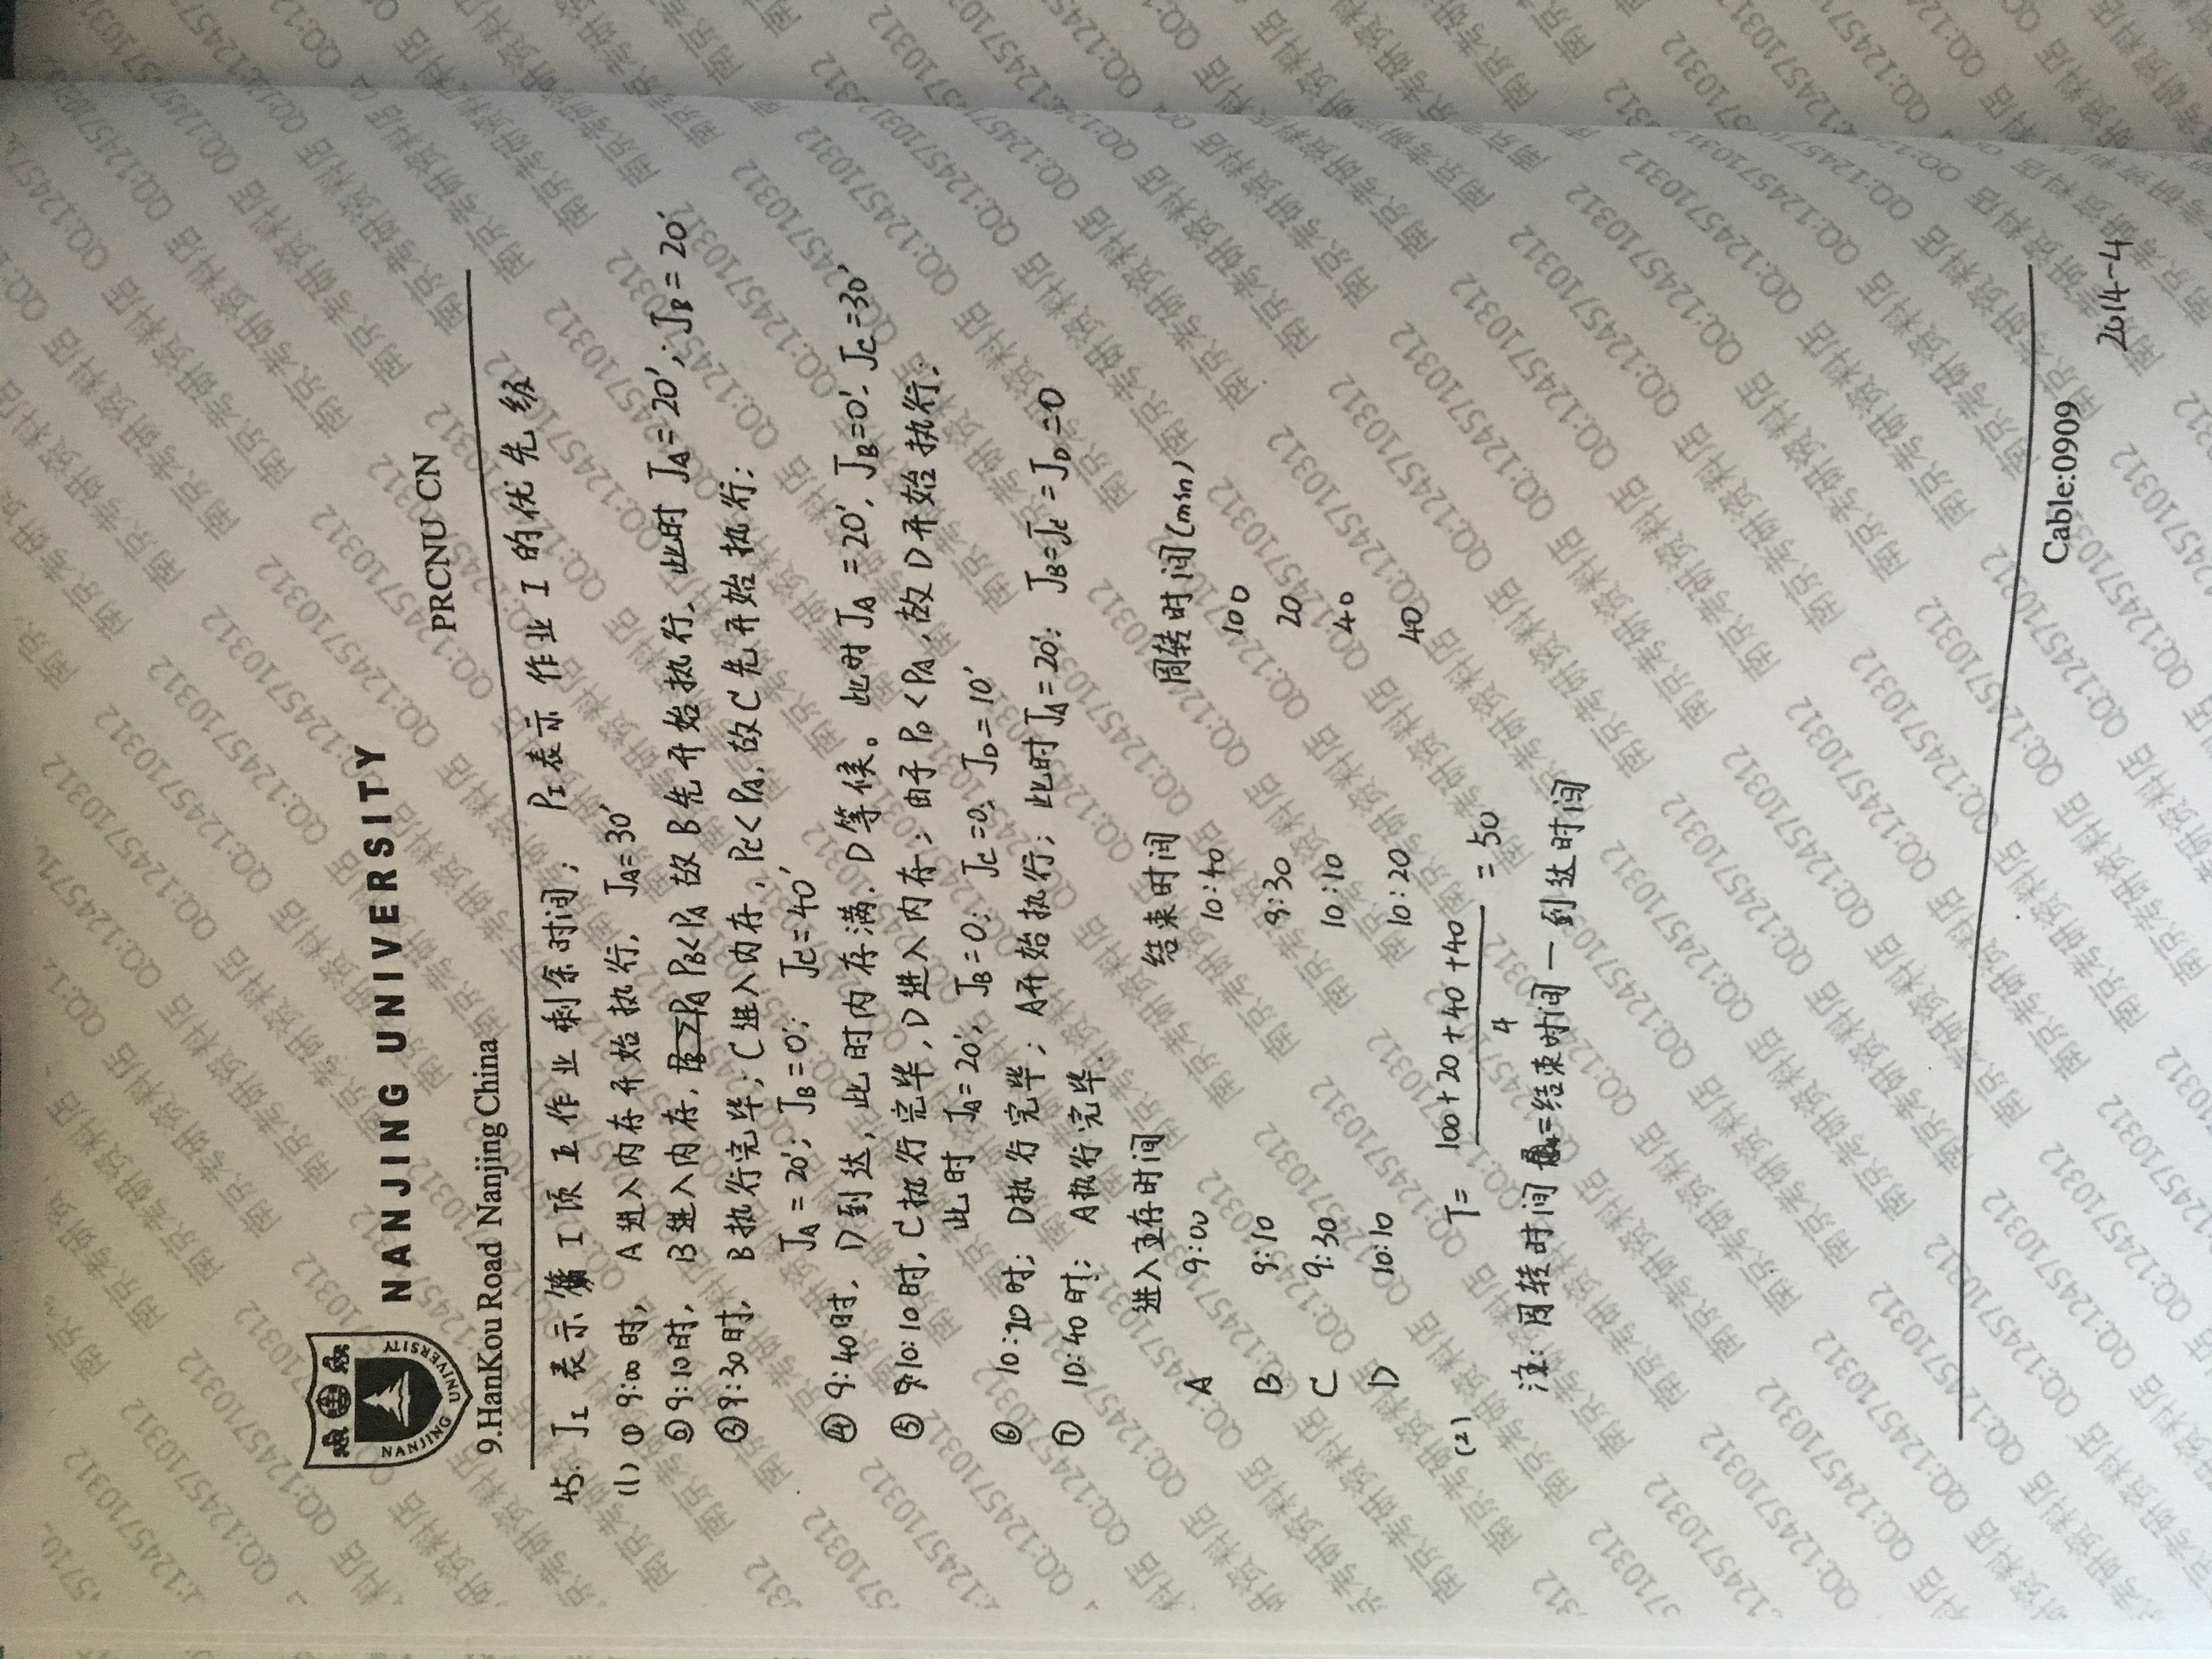 NANJING UNIVERSITY
NANJING UNIVERSITY
PRCNU CN
9.HanKou Road Nanjing China
45. J_I 表示第 I 项作业剩余时间; P_I 表示 作业 I 的优先级
(1) ① 9:00时, A进入内存开始执行, J_A=30′
② 9:10时, B进入内存, P_B<P_A 故B先开始执行, 此时 J_A=20′; J_B=20′
③ 9:30时, B执行完毕; C进入内存, P_C<P_A, 故C先开始执行;
J_A=20′; J_B=0′; J_C=40′
④ 9:40时, D到达, 此时内存满. D等候。此时 J_A=20′, J_B=0′. J_C=30′
⑤ 10:10时, C执行完毕, D进入内存; 由于 P_D<P_A, 故D开始执行;
此时 J_A=20′, J_B=0; J_C=0; J_D=10′
⑥ 10:20时; D执行完毕; A开始执行; 此时 J_A=20′; J_B=J_C=J_D=0
⑦ 10:40时; A执行完毕.
进入主存时间 结束时间 周转时间(min)
A 9:00 10:40 100
B 9:10 9:30 20
C 9:30 10:10 40
D 10:10 10:20 40
(2) T= (100+20+40+40)/4 = 50
注: 周转时间=结束时间一到达时间
Cable:0909
2014-4
南京考研资料店 QQ:1245710312